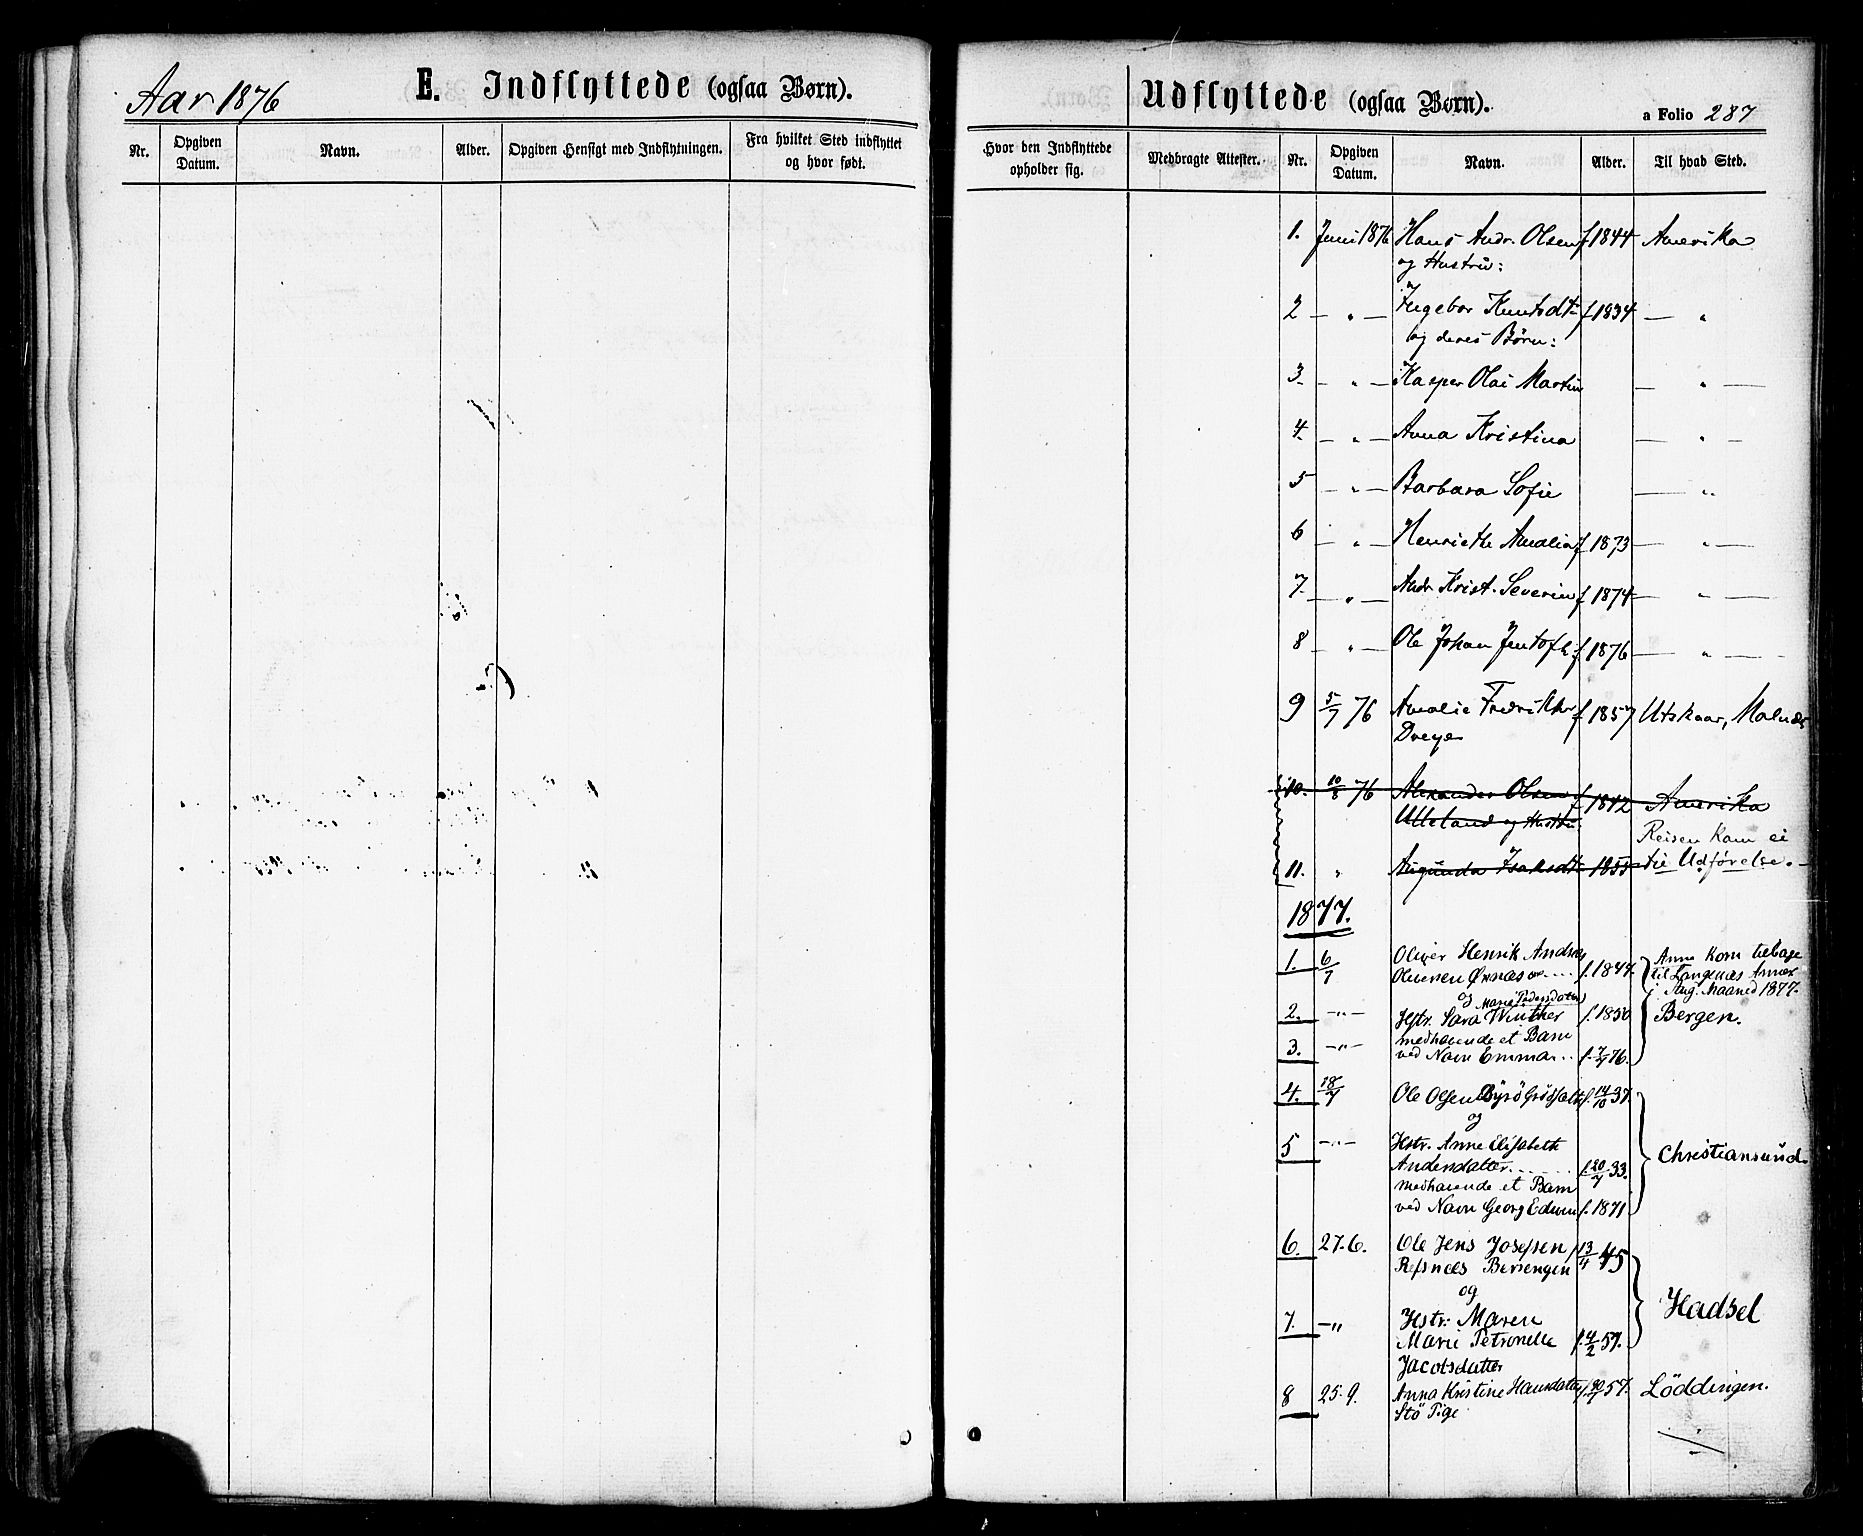 Aar 1876
E. Indflyttede (ogsaa Børn).
Nr.
Opgiven Datum.
Navn.
Alder.
Opgiven Hensigt med Indflytningen.
Fra hvilket Sted indflyttet og hvor født.
Udflyttede (ogsaa Børn).
a Folio 287
Hvor den Indflyttede opholder sig.
Medbragte Attester.
Nr.
Opgiven Datum.
Navn.
Alder.
Til hvad Sted.
1. Juni 1876 Hans Andr. Olsen f 1844 Amerika
og Hustru:
2 — " — Ingebor Knutsdt. f 1834 — "
og deres Børn:
3 — " — Kasper Olai Martin — " —
4. — " — Anna Kristina — " —
5 — " — Barbara Sofie — "
6 — " — Henriette Amalia f 1873 — " —
7 — " — Andr Krist. Severin f 1874 — " —
8 — " — Ole Johan Jentoft f 1876 — " —
9 5/7 76 Amalie Fredrikke f 1857 Utskaar, Malnæs
Dreye
10. 10/8 76 Alexander Olsen f 1842 Amerika
Ulleland og Hustru
Reisen kom ei
11. " Augunda Isaksdt. 1855 til Udførelse.
1877.
1. 6/7 Oliver Henrik Andreas
Olsen Ørnæs f. 1844.
Anne kom tilbage
til Langenæs Annex
i Aug. Maaned 1877.
og Marie Pedersdatter
2. — " — Hstr. Sara Winther f. 1850 Bergen.
3. — " — medhavende et Barn
ved Navn Emma .. f. 7/7 76.
4. 18/7 Ole Olsen f. 14/10 37.
og
5 — " — Hstr. Anne Elisabeth
Andersdatter f. 20/7 33. Christiansund.
medhavende et Barn
ved Navn Georg Edwin f. 1871
6. 27.6. Ole Jens Josefsen f 13/4 45
Refsnæs
og
Hadsel
7. — " Hstr. Maren
Marie Petronelle f. 4/2 57.
Jacobsdatter
8 25.9. Anna Kristine Hansdatter 57. Löddingen.
Stö Pige